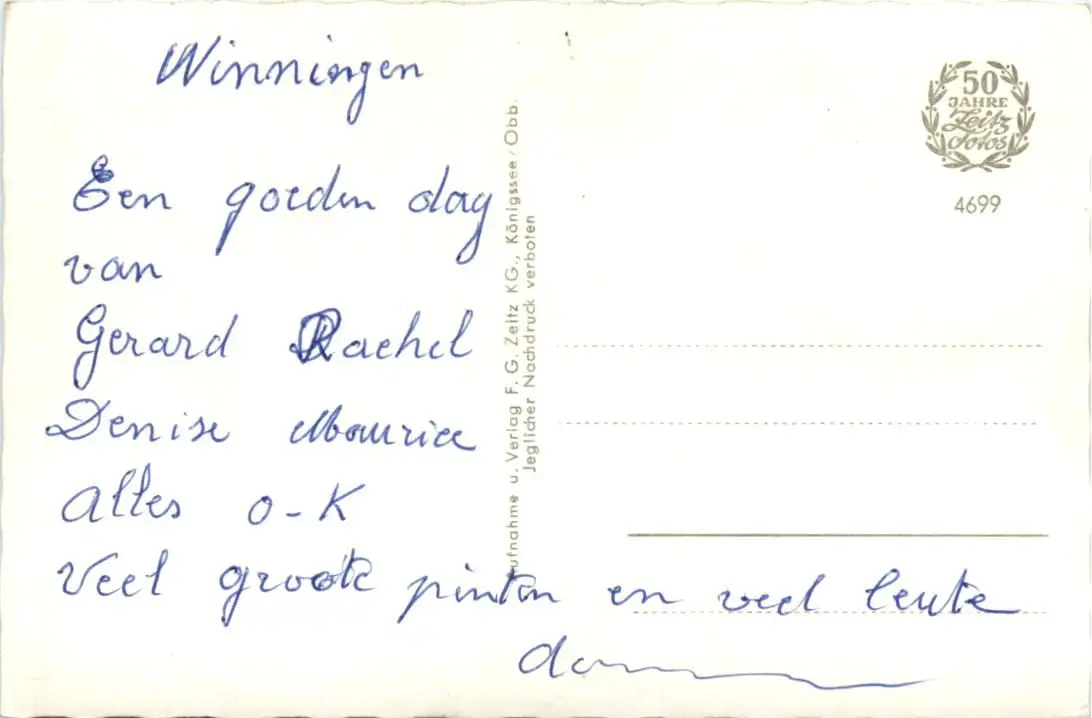 Winningen
Een goeden dag
van
Gerard Rachel
Denise Maurice
Alles O-K
Veel groote pinten en veel leute
Aufnahme u. Verlag F. G. Zeitz KG., Königssee/Obb.
Jeglicher Nachdruck verboten
50
JAHRE
Zeitz
Fotos
4699